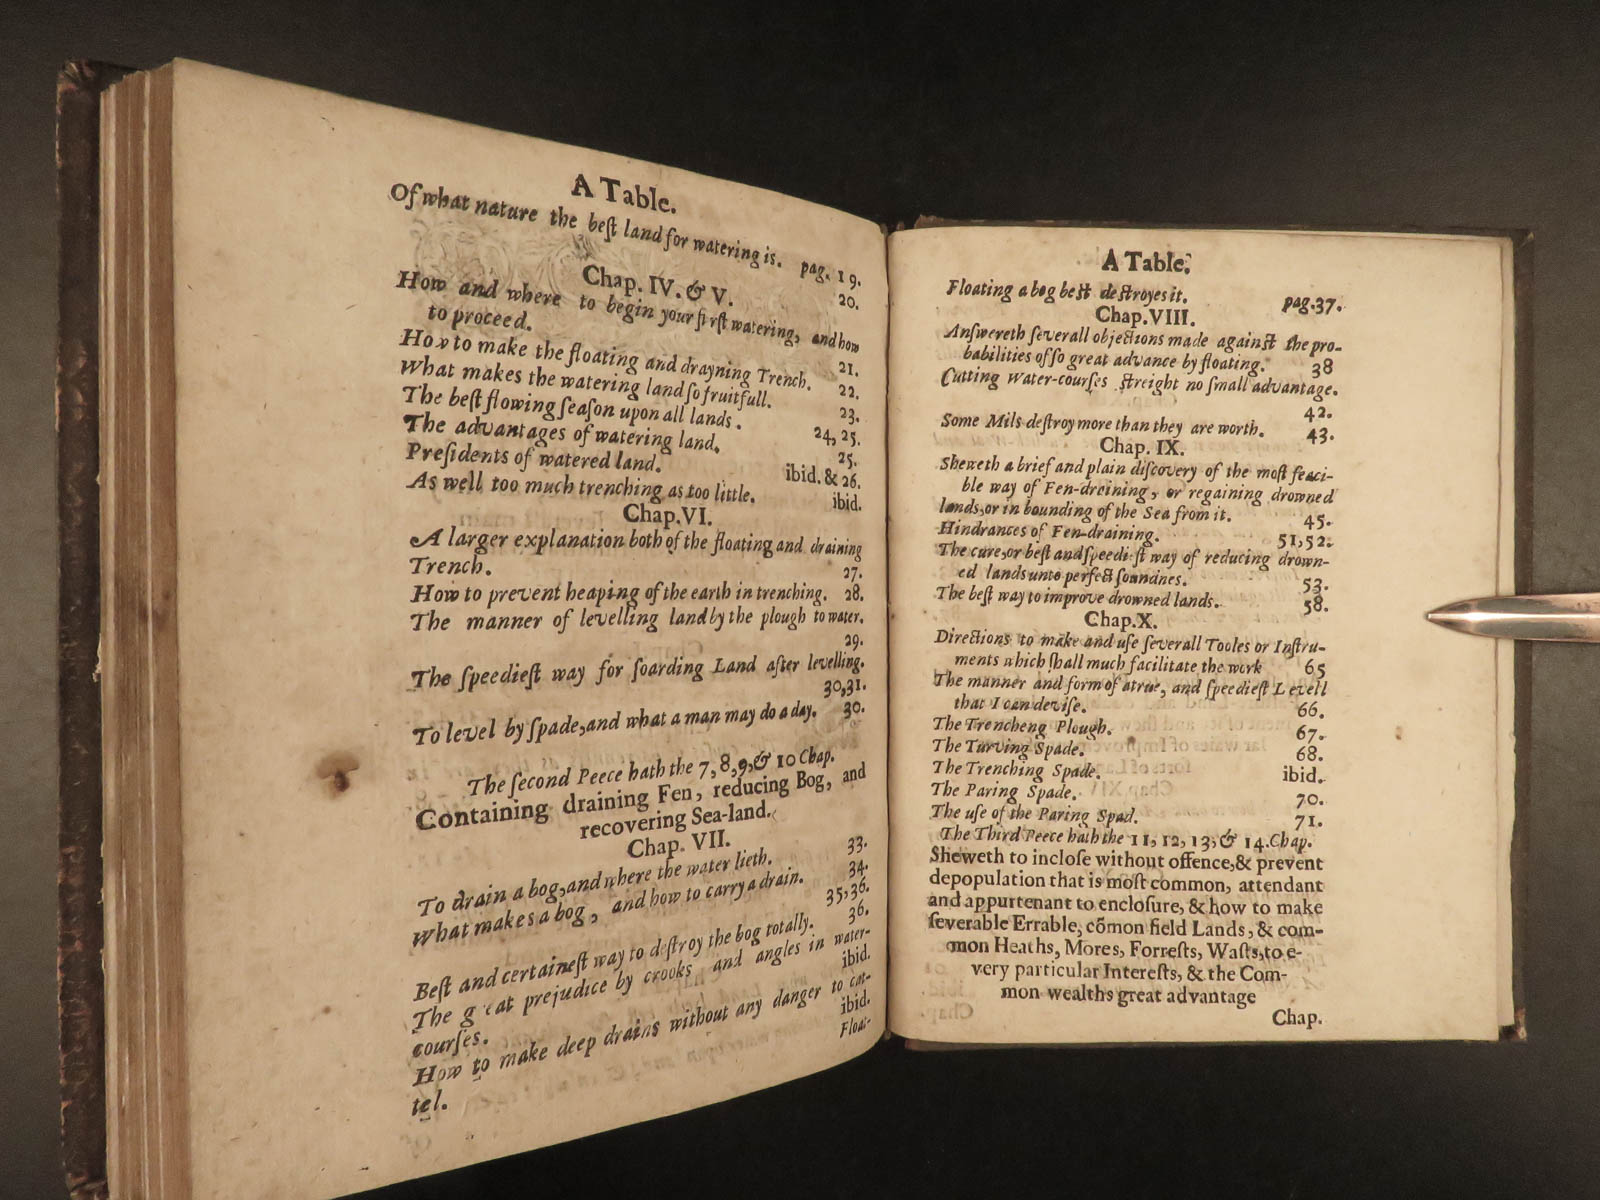 A Table.
Of what nature the beſt land for watering is. pag. 19.
Chap. IV. & V. 20.
How and where to begin your firſt watering, and how
to proceed. 21.
How to make the floating and drayning Trench. 22.
What makes the watering land ſo fruitfull. 23.
The beſt flowing ſeaſon upon all lands. 24, 25.
The advantages of watering land. 25.
Preſidents of watered land. ibid. & 26.
As well too much trenching as too little. ibid.
Chap. VI.
A larger explanation both of the floating and draining
Trench. 27.
How to prevent heaping of the earth in trenching. 28.
The manner of levelling land by the plough to water.
29.
The ſpeedieſt way for ſoarding Land after levelling.
30,31.
To level by ſpade, and what a man may do a day. 30.
The ſecond Peece hath the 7, 8, 9, & 10 Chap.
Containing draining Fen, reducing Bog, and
recovering Sea-land.
Chap. VII.
To drain a bog, and where the water lieth. 33.
What makes a bog, and how to carry a drain. 34.
35,36.
Beſt and certaineſt way to deſtroy the bog totally. 36.
The great prejudice by crooks and angles in water-
courſes. ibid.
How to make deep drains without any danger to cat-
tel. ibid.
Float-
A Table.
Floating a bog beſt deſtroyes it. pag. 37.
Chap. VIII.
Anſwereth ſeverall objections made against the pro-
babilities of ſo great advance by floating. 38
Cutting Water-courſes ſtreight no ſmall advantage.
42.
Some Mils deſtroy more than they are worth. 43.
Chap. IX.
Sheweth a brief and plain diſcovery of the moſt feaci-
ble way of Fen-dreining, or regaining drowned
lands, or in bounding of the Sea from it. 45.
Hindrances of Fen-draining. 51,52.
The cure, or beſt and ſpeedieſt way of reducing drown-
ed lands unto perfect ſoundnes. 53.
The beſt way to improve drowned lands. 58.
Chap. X.
Directions to make and uſe ſeverall Tooles or Inſtru-
ments which ſhall much facilitate the work 65
The manner and form of a true, and ſpeedieſt Levell
that I can deviſe. 66.
The Trencheng Plough. 67.
The Turving Spade. 68.
The Trenching Spade. ibid.
The Paring Spade. 70.
The uſe of the Paring Spad. 71.
The Third Peece hath the 11, 12, 13, & 14. Chap.
Sheweth to incloſe without offence, & prevent
depopulation that is moſt common, attendant
and appurtenant to encloſure, & how to make
ſeverable Errable, cõmon field Lands, & com-
mon Heaths, Mores, Forreſts, Waſts, to e-
very particular Intereſts, & the Com-
mon wealths great advantage
Chap.